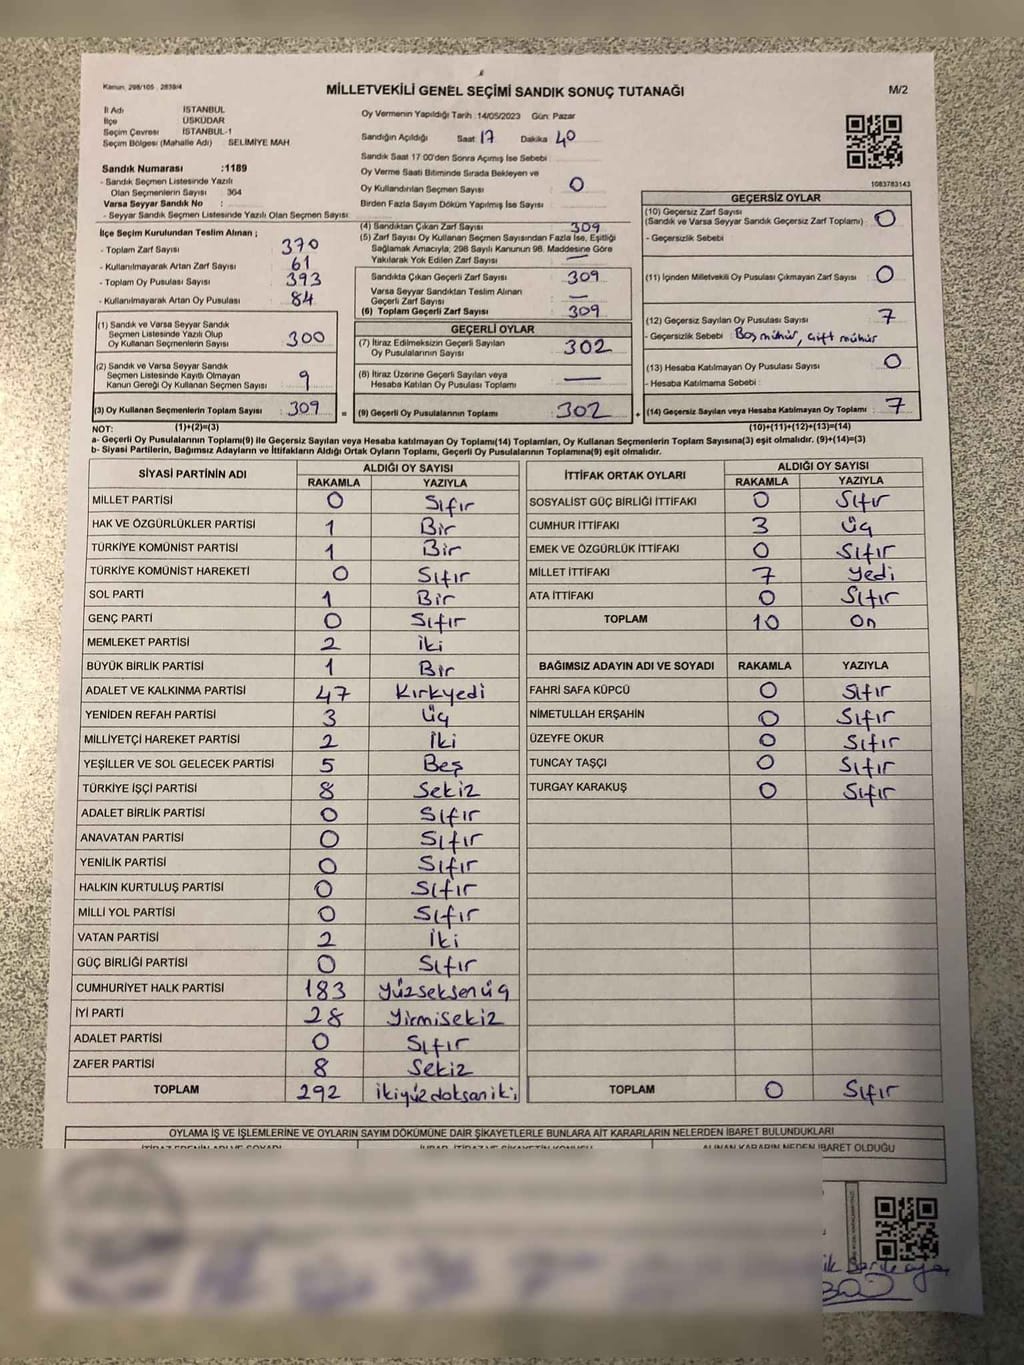 Kanun, 298/105 , 2839/4
MİLLETVEKİLİ GENEL SEÇİMİ SANDIK SONUÇ TUTANAĞI
M/2
İl Adı İSTANBUL
İlçe ÜSKÜDAR
Seçim Çevresi İSTANBUL-1
Seçim Bölgesi (Mahalle Adı) SELİMİYE MAH.
Oy Vermenin Yapıldığı Tarih :14/05/2023 Gün: Pazar
Sandığın Açıldığı Saat 17 Dakika 40
Sandık Saat 17:00'den Sonra Açımış İse Sebebi
Oy Verme Saati Bitiminde Sırada Bekleyen ve
Oy Kullandırılan Seçmen Sayısı 0
Birden Fazla Sayım Döküm Yapılmış İse Sayısı
1083783143
Sandık Numarası :1189
- Sandık Seçmen Listesinde Yazılı
Olan Seçmenlerin Sayısı 364
Varsa Seyyar Sandık No :
- Seyyar Sandık Seçmen Listesinde Yazılı Olan Seçmen Sayısı:
İlçe Seçim Kurulundan Teslim Alınan ;
- Toplam Zarf Sayısı 370
- Kullanılmayarak Artan Zarf Sayısı 61
- Toplam Oy Pusulası Sayısı 393
- Kullanılmayarak Artan Oy Pusulası 84
(1) Sandık ve Varsa Seyyar Sandık
Seçmen Listesinde Yazılı Olup
Oy Kullanan Seçmenlerin Sayısı 300
(2) Sandık ve Varsa Seyyar Sandık
Seçmen Listesinde Kayıtlı Olmayan
Kanun Gereği Oy Kullanan Seçmen Sayısı 9
(3) Oy Kullanan Seçmenlerin Toplam Sayısı 309
(4) Sandıktan Çıkan Zarf Sayısı 309
(5) Zarf Sayısı Oy Kullanan Seçmen Sayısından Fazla İse, Eşitliği
Sağlamak Amacıyla, 298 Sayılı Kanunun 98. Maddesine Göre
Yakılarak Yok Edilen Zarf Sayısı —
Sandıkta Çıkan Geçerli Zarf Sayısı 309
Varsa Seyyar Sandıktan Teslim Alınan
Geçerli Zarf Sayısı —
(6) Toplam Geçerli Zarf Sayısı 309
GEÇERLİ OYLAR
(7) İtiraz Edilmeksizin Geçerli Sayılan
Oy Pusulalarının Sayısı 302
(8) İtiraz Üzerine Geçerli Sayılan veya
Hesaba Katılan Oy Pusulası Toplamı —
= (9) Geçerli Oy Pusulalarının Toplamı 302
GEÇERSİZ OYLAR
(10) Geçersiz Zarf Sayısı
(Sandık ve Varsa Seyyar Sandık Geçersiz Zarf Toplamı) 0
- Geçersizlik Sebebi
(11) İçinden Milletvekili Oy Pusulası Çıkmayan Zarf Sayısı 0
(12) Geçersiz Sayılan Oy Pusulası Sayısı 7
- Geçersizlik Sebebi Boş mühür, çift mühür
(13) Hesaba Katılmayan Oy Pusulası Sayısı 0
- Hesaba Katılmama Sebebi :
+ (14) Geçersiz Sayılan veya Hesaba Katılmayan Oy Toplamı 7
NOT: (1)+(2)=(3) (10)+(11)+(12)+(13)=(14)
a- Geçerli Oy Pusulalarının Toplamı(9) ile Geçersiz Sayılan veya Hesaba katılmayan Oy Toplamı(14) Toplamları, Oy Kullanan Seçmenlerin Toplam Sayısına(3) eşit olmalıdır. (9)+(14)=(3)
b- Siyasi Partilerin, Bağımsız Adayların ve İttifakların Aldığı Ortak Oyların Toplamı, Geçerli Oy Pusulalarının Toplamına(9) eşit olmalıdır.
SİYASİ PARTİNİN ADI ALDIĞI OY SAYISI
RAKAMLA YAZIYLA
MİLLET PARTİSİ 0 Sıfır
HAK VE ÖZGÜRLÜKLER PARTİSİ 1 Bir
TÜRKİYE KOMÜNİST PARTİSİ 1 Bir
TÜRKİYE KOMÜNİST HAREKETİ 0 Sıfır
SOL PARTİ 1 Bir
GENÇ PARTİ 0 Sıfır
MEMLEKET PARTİSİ 2 İki
BÜYÜK BİRLİK PARTİSİ 1 Bir
ADALET VE KALKINMA PARTİSİ 47 Kırkyedi
YENİDEN REFAH PARTİSİ 3 Üç
MİLLİYETÇİ HAREKET PARTİSİ 2 İki
YEŞİLLER VE SOL GELECEK PARTİSİ 5 Beş
TÜRKİYE İŞÇİ PARTİSİ 8 Sekiz
ADALET BİRLİK PARTİSİ 0 Sıfır
ANAVATAN PARTİSİ 0 Sıfır
YENİLİK PARTİSİ 0 Sıfır
HALKIN KURTULUŞ PARTİSİ 0 Sıfır
MİLLİ YOL PARTİSİ 0 Sıfır
VATAN PARTİSİ 2 İki
GÜÇ BİRLİĞİ PARTİSİ 0 Sıfır
CUMHURİYET HALK PARTİSİ 183 Yüzseksenüç
İYİ PARTİ 28 Yirmisekiz
ADALET PARTİSİ 0 Sıfır
ZAFER PARTİSİ 8 Sekiz
TOPLAM 292 İkiyüzdoksaniki
İTTİFAK ORTAK OYLARI ALDIĞI OY SAYISI
RAKAMLA YAZIYLA
SOSYALİST GÜÇ BİRLİĞİ İTTİFAKI 0 Sıfır
CUMHUR İTTİFAKI 3 Üç
EMEK VE ÖZGÜRLÜK İTTİFAKI 0 Sıfır
MİLLET İTTİFAKI 7 Yedi
ATA İTTİFAKI 0 Sıfır
TOPLAM 10 On
BAĞIMSIZ ADAYIN ADI VE SOYADI RAKAMLA YAZIYLA
FAHRİ SAFA KÜPCÜ 0 Sıfır
NİMETULLAH ERŞAHİN 0 Sıfır
ÜZEYFE OKUR 0 Sıfır
TUNCAY TAŞÇI 0 Sıfır
TURGAY KARAKUŞ 0 Sıfır
TOPLAM 0 Sıfır
OYLAMA İŞ VE İŞLEMLERİNE VE OYLARIN SAYIM DÖKÜMÜNE DAİR ŞİKAYETLERLE BUNLARA AİT KARARLARIN NELERDEN İBARET BULUNDUKLARI
ALINAN KARARIN NEDEN İBARET OLDUĞU